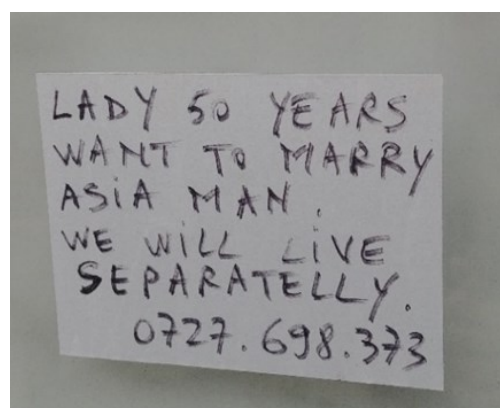 LADY 50 YEARS
WANT TO MARRY
ASiA MAN.
WE WiLL LiVE
SEPARATELLY.
0727.698.373